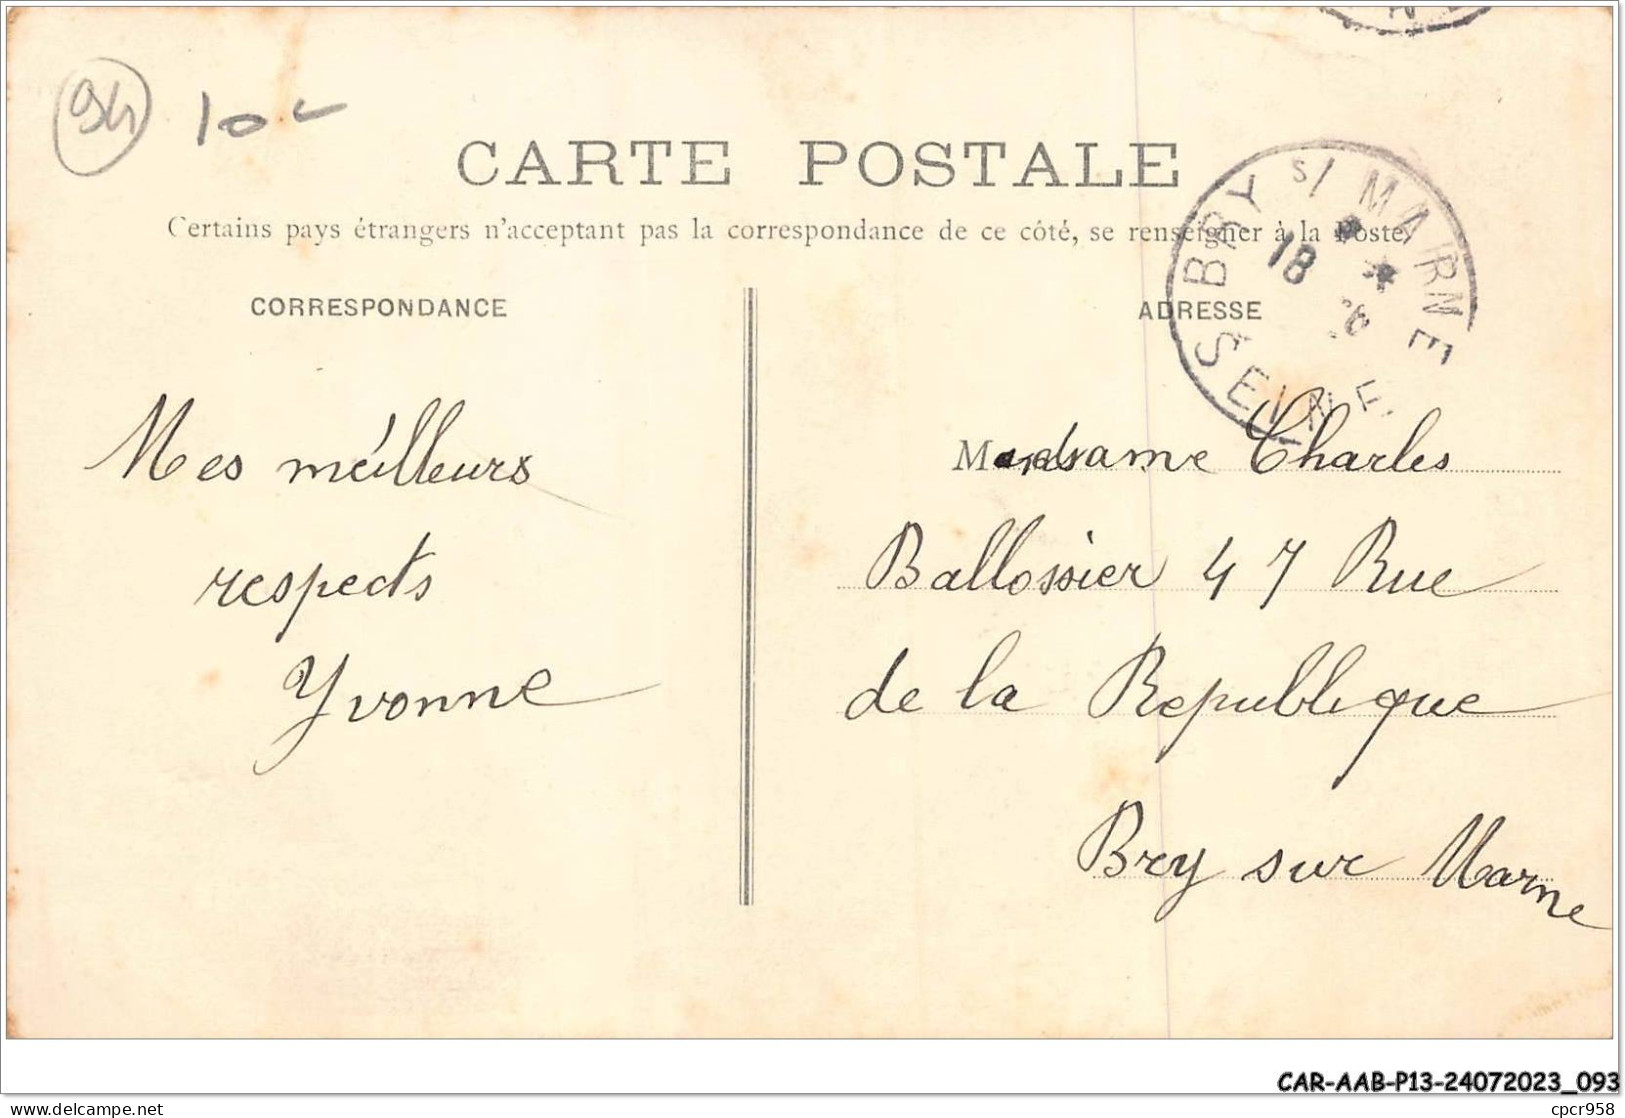 94
10
CARTE POSTALE
Certains pays étrangers n'acceptant pas la correspondance de ce côté, se renseigner à la Poste
BRY S/ MARNE
18
SEINE
CORRESPONDANCE
ADRESSE
Mes méilleurs
respects
Yvonne
Madame Charles
Ballossier 47 Rue
de la Republique
Bry sur Marne
CAR-AAB-P13-24072023_093
delcampe.net
cpcr958